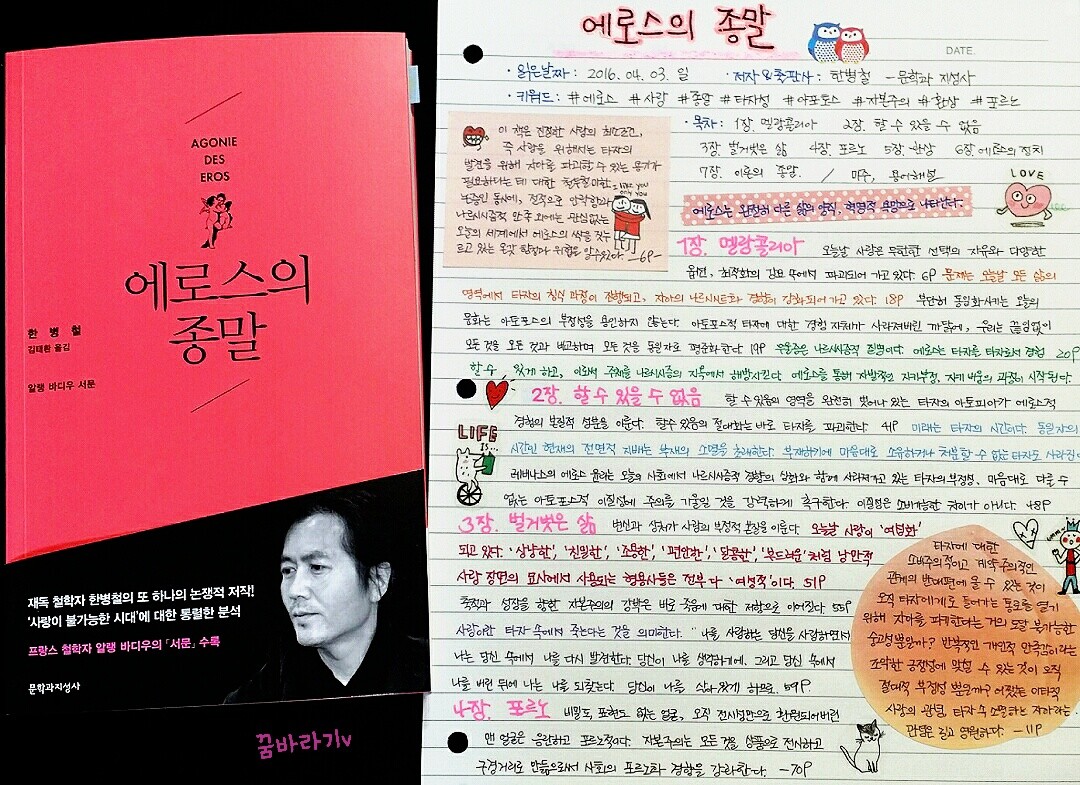 AGONIE
DES
EROS
에로스의
종말
한 병 철
김태환 옮김
알랭 바디우 서문
재독 철학자 한병철의 또 하나의 논쟁적 저작!
'사랑이 불가능한 시대'에 대한 통렬한 분석
프랑스 철학자 알랭 바디우의 「서문」 수록
문학과지성사
꿈바라기v
에로스의 종말
DATE.
· 읽은날짜 : 2016. 04. 03. 일 · 저자&출판사 : 한병철 - 문학과 지성사
· 키워드 : #에로스 #사랑 #종말 #타자성 #아토포스 #자본주의 #환상 #포르노
· 목차 : 1장. 멜랑콜리아 2장. 할 수 있을 수 없음
3장. 벌거벗은 삶 4장. 포르노 5장. 환상 6장. 에로스의 정치
7장. 이론의 종말. / 미주, 용어해설
이 책은 진정한 사랑의 최소조건,
즉 사랑을 위해서는 타자의
발견을 위해 자아를 파괴할 수 있는 용기가
필요하다는 데 대한 철두철미한
논증인 동시에, 전적으로 안락함과
나르시시즘적 만족 외에는 관심없는
오늘의 세계에서 에로스의 싹을 짓누
르고 있는 온갖 함정과 위협을 알 수 있다. -6P-
I like you
only you
에로스는 완전히 다른 삶의 양식, 혁명적 욕망으로 나타난다.
LOVE
1장. 멜랑콜리아 오늘날 사랑은 무한한 선택의 자유와 다양한
옵션, 최적화의 강요 속에서 파괴되어 가고 있다. 6P 문제는 오늘날 모든 삶의
영역에서 타자의 침식 과정이 진행되고, 자아의 나르시스트화 경향이 강화되어가고 있다. 18P 부단히 동일화시키는 오늘의
문화는 아토포스의 부정성을 용인하지 않는다. 아토포스적 타자에 대한 경험 자체가 사라져버린 까닭에, 우리는 끊임없이
모든 것을 모든 것과 비교하며 모든 것을 동일자로 평준화한다. 19P 우울증은 나르시시즘적 질병이다. 에로스는 타자를 타자로서 경험 20P
할 수 있게 하고, 이로써 주체를 나르시시즘의 지옥에서 해방시킨다. 에로스를 통해 자발적인 자기부정, 자기 비움의 과정이 시작된다.
2장. 할 수 있을 수 없음 할 수 있음의 영역을 완전히 벗어나 있는 타자의 아토피아가 에로스적
경험의 본질적 성분을 이룬다. 할수있음의 절대화는 바로 타자를 파괴한다. 41P 미래는 타자의 시간이다. 동일자의
LIFE
IS...
시간인 현재의 전면적 지배는 부재의 소멸을 초래한다. 부재하기에 마음대로 소유하거나 처분할 수 없는 타자도 사라진다
레비나스의 에로스 윤리는 오늘의 사회에서 나르시시즘적 경향의 심화와 함께 사라져가고 있는 타자의 부정성, 마음대로 다룰 수
없는 아토포스적 이질성에 주의를 기울일 것을 강력하게 촉구한다. 이질성은 소비가능한 차이가 아니다. 48P
3장. 벌거벗은 삶 변신과 상처가 사랑의 부정적 본질을 이룬다. 오늘날 사랑이 '여성화'
되고 있다. '상냥한', '친밀한', '조용한', '편안한', '달콤한', '부드러운' 처럼 낭만적
사랑 장면의 묘사에서 사용되는 형용사들은 전부 다 '여성적'이다. 51P
축적과 성장을 향한 자본주의의 강박은 바로 죽음에 대한 저항으로 이어진다. 55P
사랑이란 타자 속에서 죽는다는 것을 의미한다. "나를 사랑하는 당신을 사랑하면서
나는 당신 속에서 나를 다시 발견한다. 당신이 나를 생각하기에, 그리고 당신 속에서
나를 버린 뒤에 나는 나를 되찾는다. 당신이 나를 살아있게 하므로. 59P
타자에 대한
소비주의적이고 계약주의적인
관계의 반대편에 올 수 있는 것이
오직 타자에게로 들어가는 통로를 열기
위해 자아를 파괴한다는 거의 도달 불가능한
숭고성뿐일까? 반복적인 개인적 만족감이라는
조악한 긍정성에 맞설 수 있는 것이 오직
절대적 부정성 뿐일까? 어쨌든 이타적
사랑의 관념, 타자 속 소멸하는 자아라는
관념은 길고 영원하다. -11P
4장. 포르노 비밀도, 표현도 없는 얼굴, 오직 전시성만으로 환원되어버린
맨 얼굴은 음란하고 포르노적이다. 자본주의는 모든 것을 상품으로 전시하고
구경거리로 만듦으로써 사회의 포르노화 경향을 강화한다. -70P